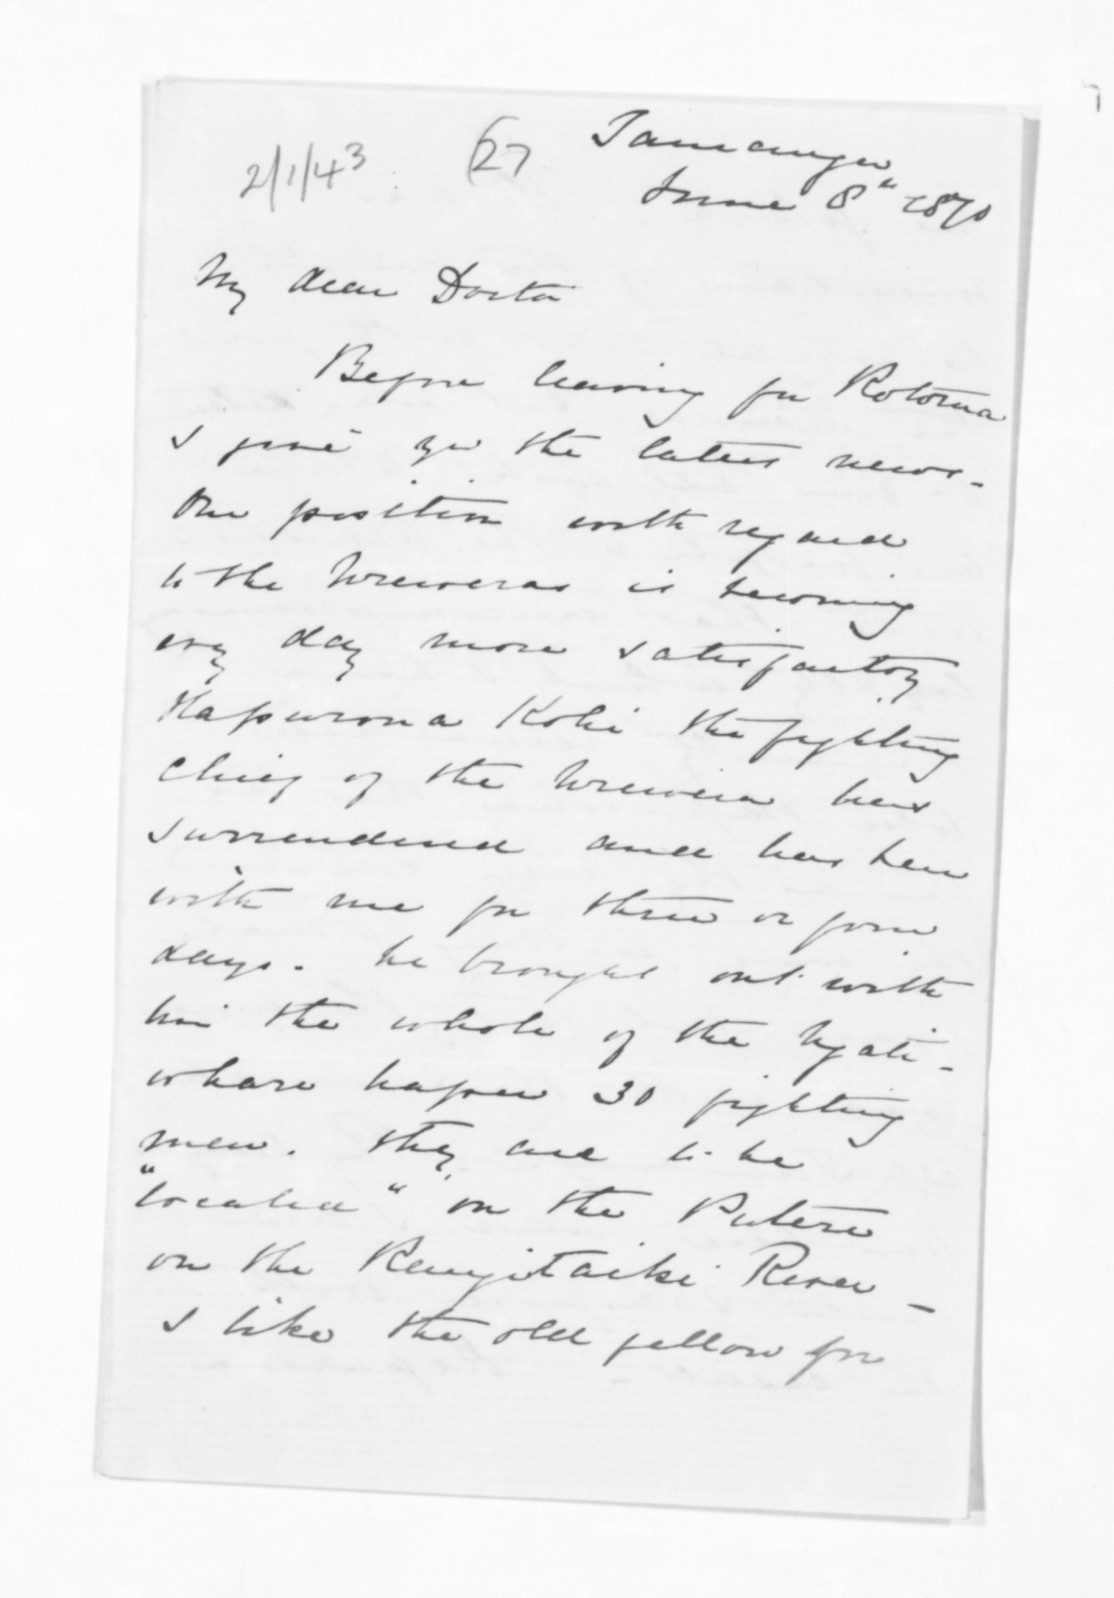 2/1/43 (27
Tauranga
June 8" 1870
My dear Doctor
Before leaving for Rotorua
I give you the latest news.
Our position with regard
to the Urewera is becoming
evy day more satisfactory
Hapurona Kohi the fighting
chief of the Urewera has
surrendered and has been
with me for three or four
days. he brought out with
him the whole of the Ngati-
whare hapu 30 fighting
men. they are to be
"located" on the Putere
on the Rangitaiki River -
I like the old fellow for